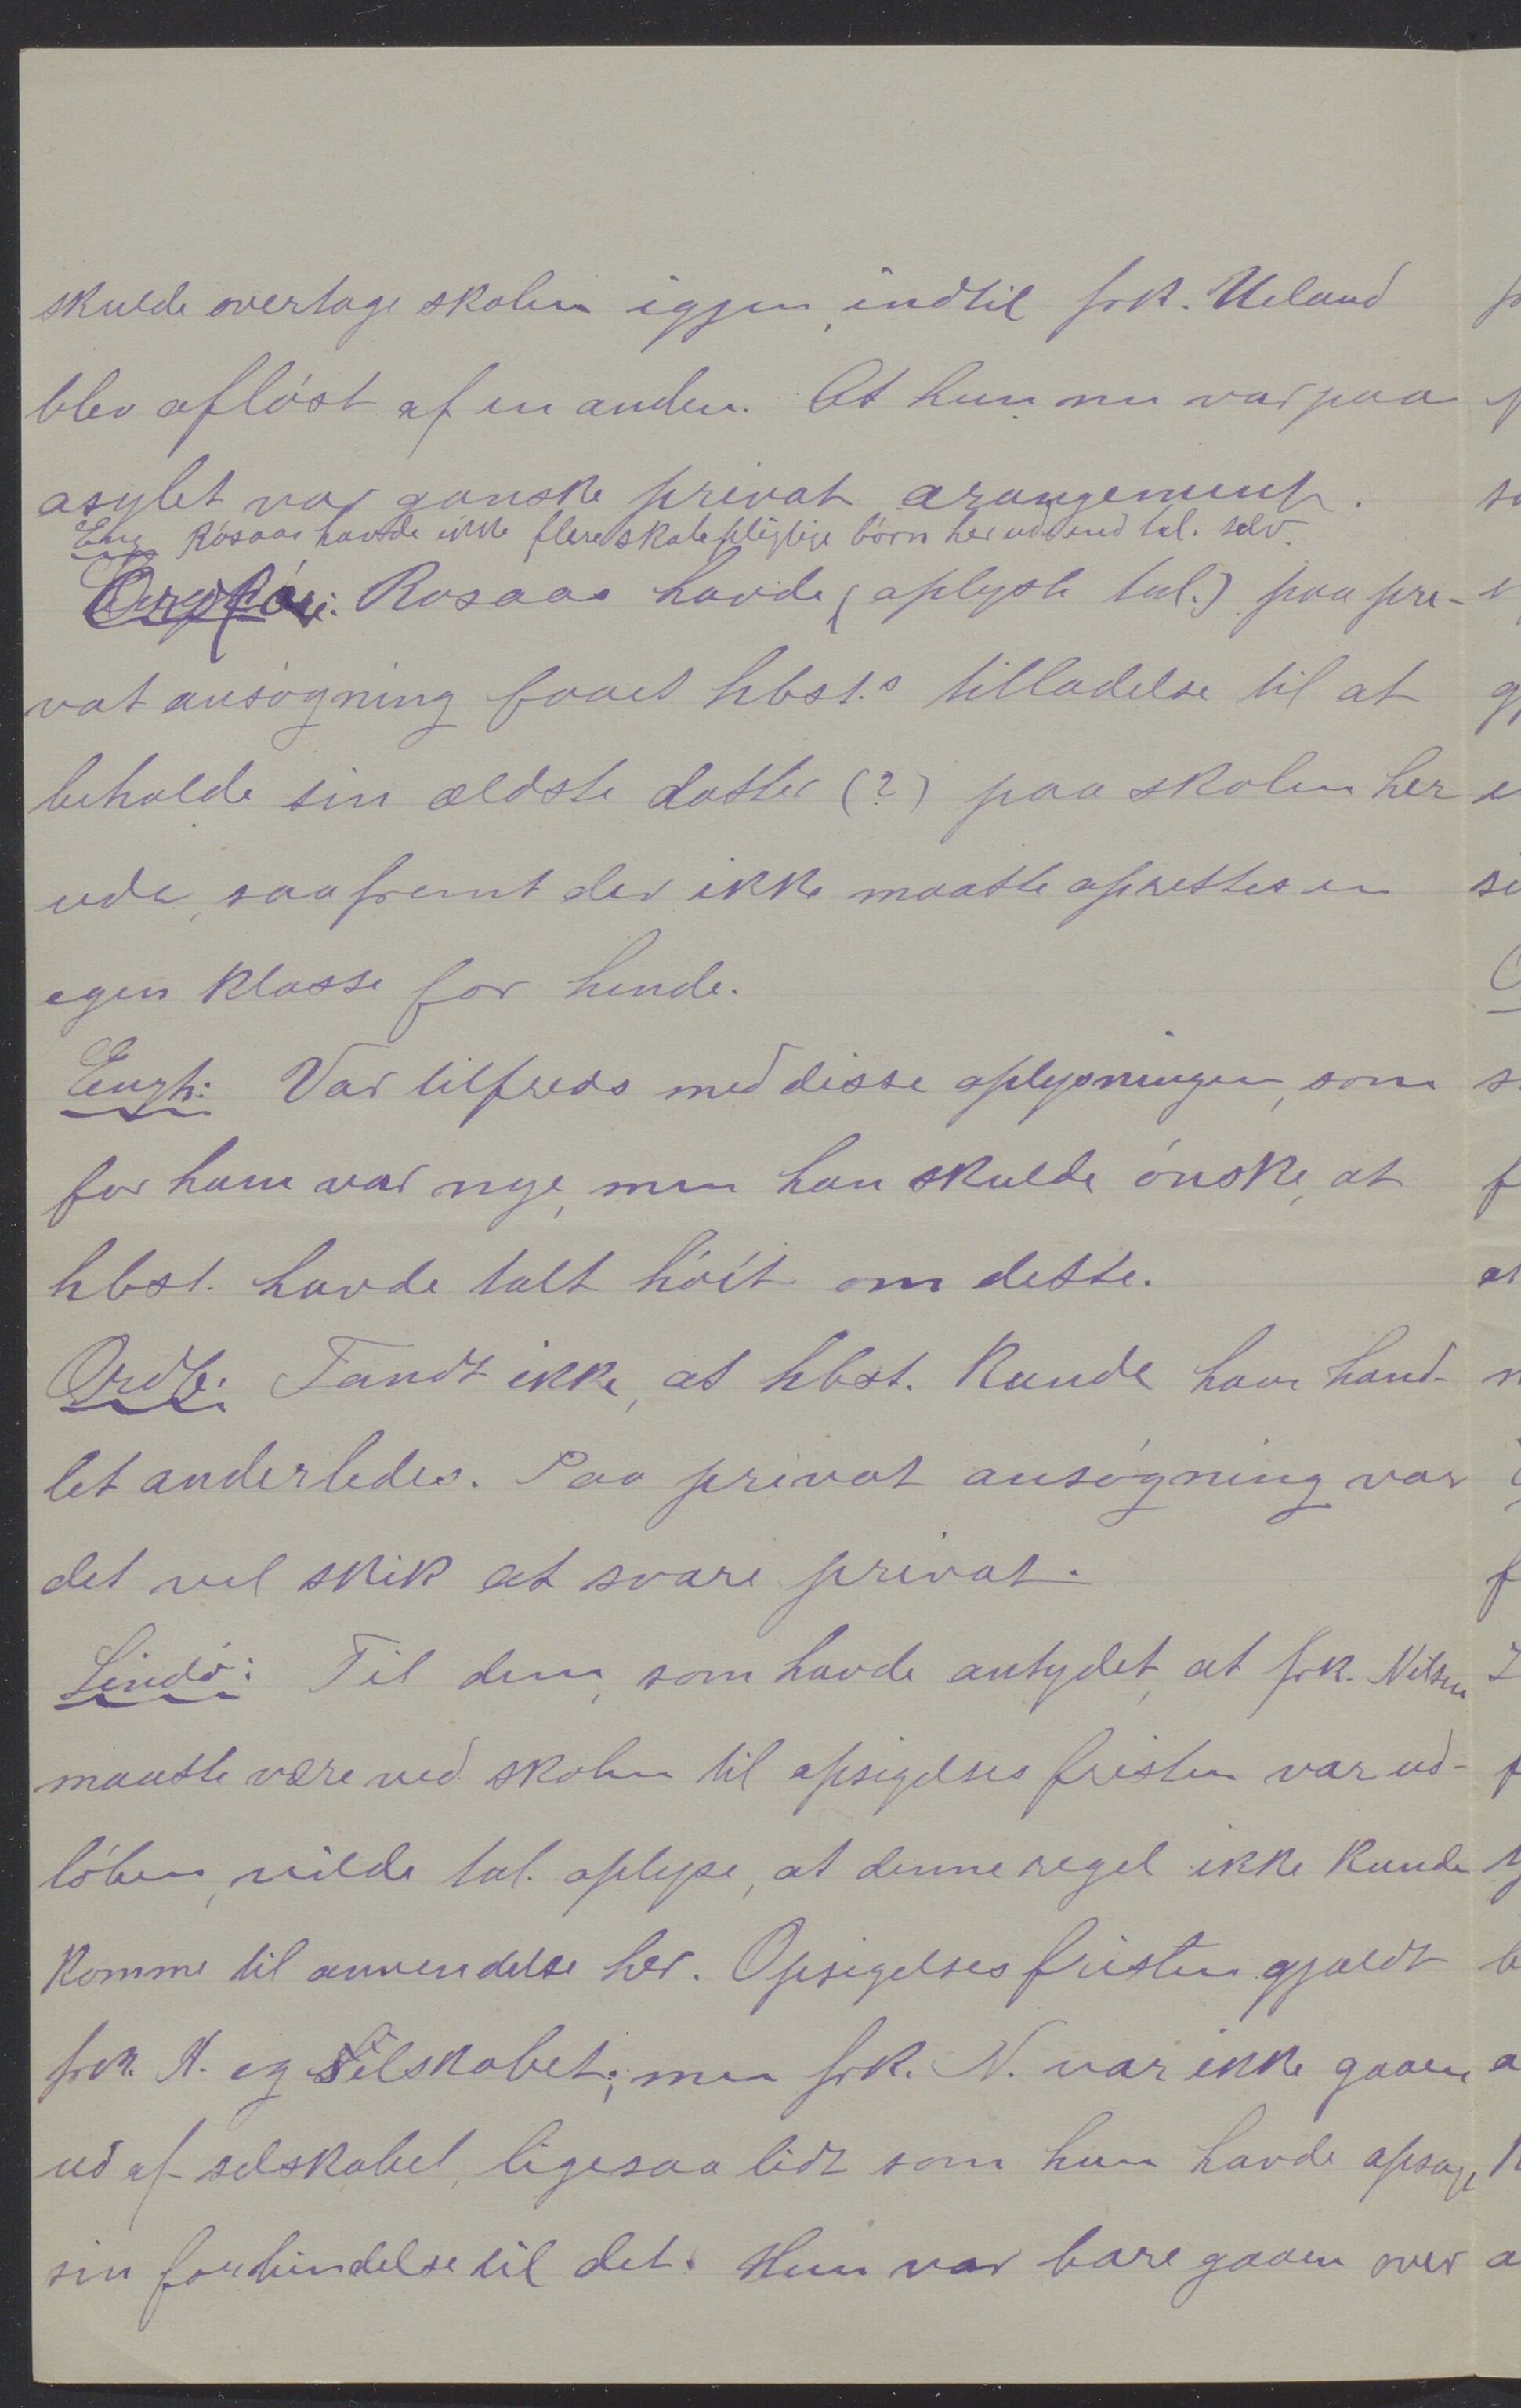 skulde overtage skolen igjen, indtil frk. Ueland
blev afløst af en anden. At hun nu var paa
asylet var ganske privat arangement.
Eng Rosaas havde ikke flere skolepligtige børn her ude end tal. selv.
Rosaas havde (oplyste tal.) paa pri-
vat ansøgning faaet hbst.s tilladelse til at
beholde sin ældste datter (?) paa skolen her
ude, saafremt der ikke maatte oprettes en
egen klasse for hende.
Engh: Var tilfreds med disse oplysninger, som
for ham var nye, men han skulde ønske, at
hbst. havde talt høit om dette.
Ordf.: Fandt ikke, at hbst. kunde have hand-
let anderledes. Paa privat ansøgning var
det vel skik at svare privat.
Lindø: Til dem, som havde antydet, at frk. Nilsen
maatte være ved skolen til opsigelsesfristen var ud-
løben, vilde tal. oplyse, at denne regel ikke kunde
komme til anvendelse her. Opsigelsesfristen gjældt
frk. N. og Selskabet; men frk. N. var ikke gaaen
ud af selskabet, ligesaa lidt som hun havde opsagt
sin forbindelse til det. Hun var bare gaaen over